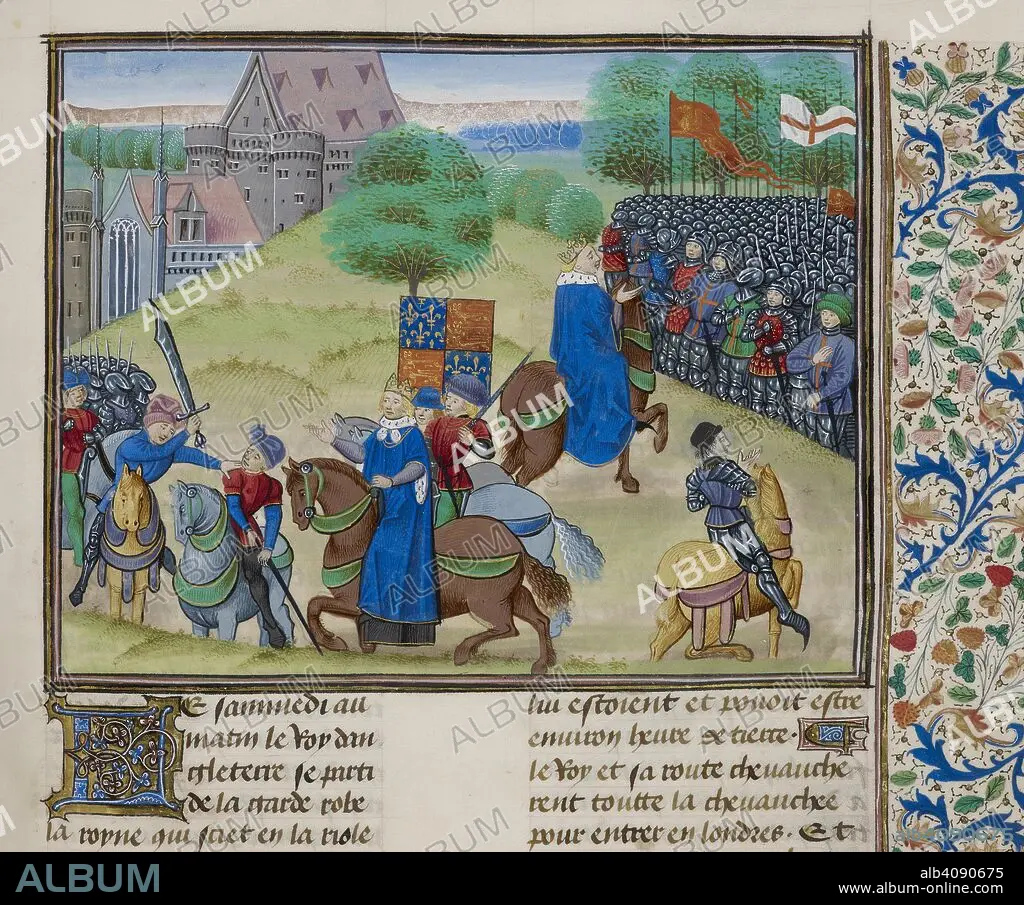 Le sammedi au
matin le Roy dan
gleterre se parti
de la garde robe
la royne qui sciet en la riole
lui estoient et pouoit estre
environ heure de tierce.
le Roy et sa route cheuauche
rent toutte la cheuauchee
pour entrer en londres. Et
ALBUM
alb4090675
www.album-online.com